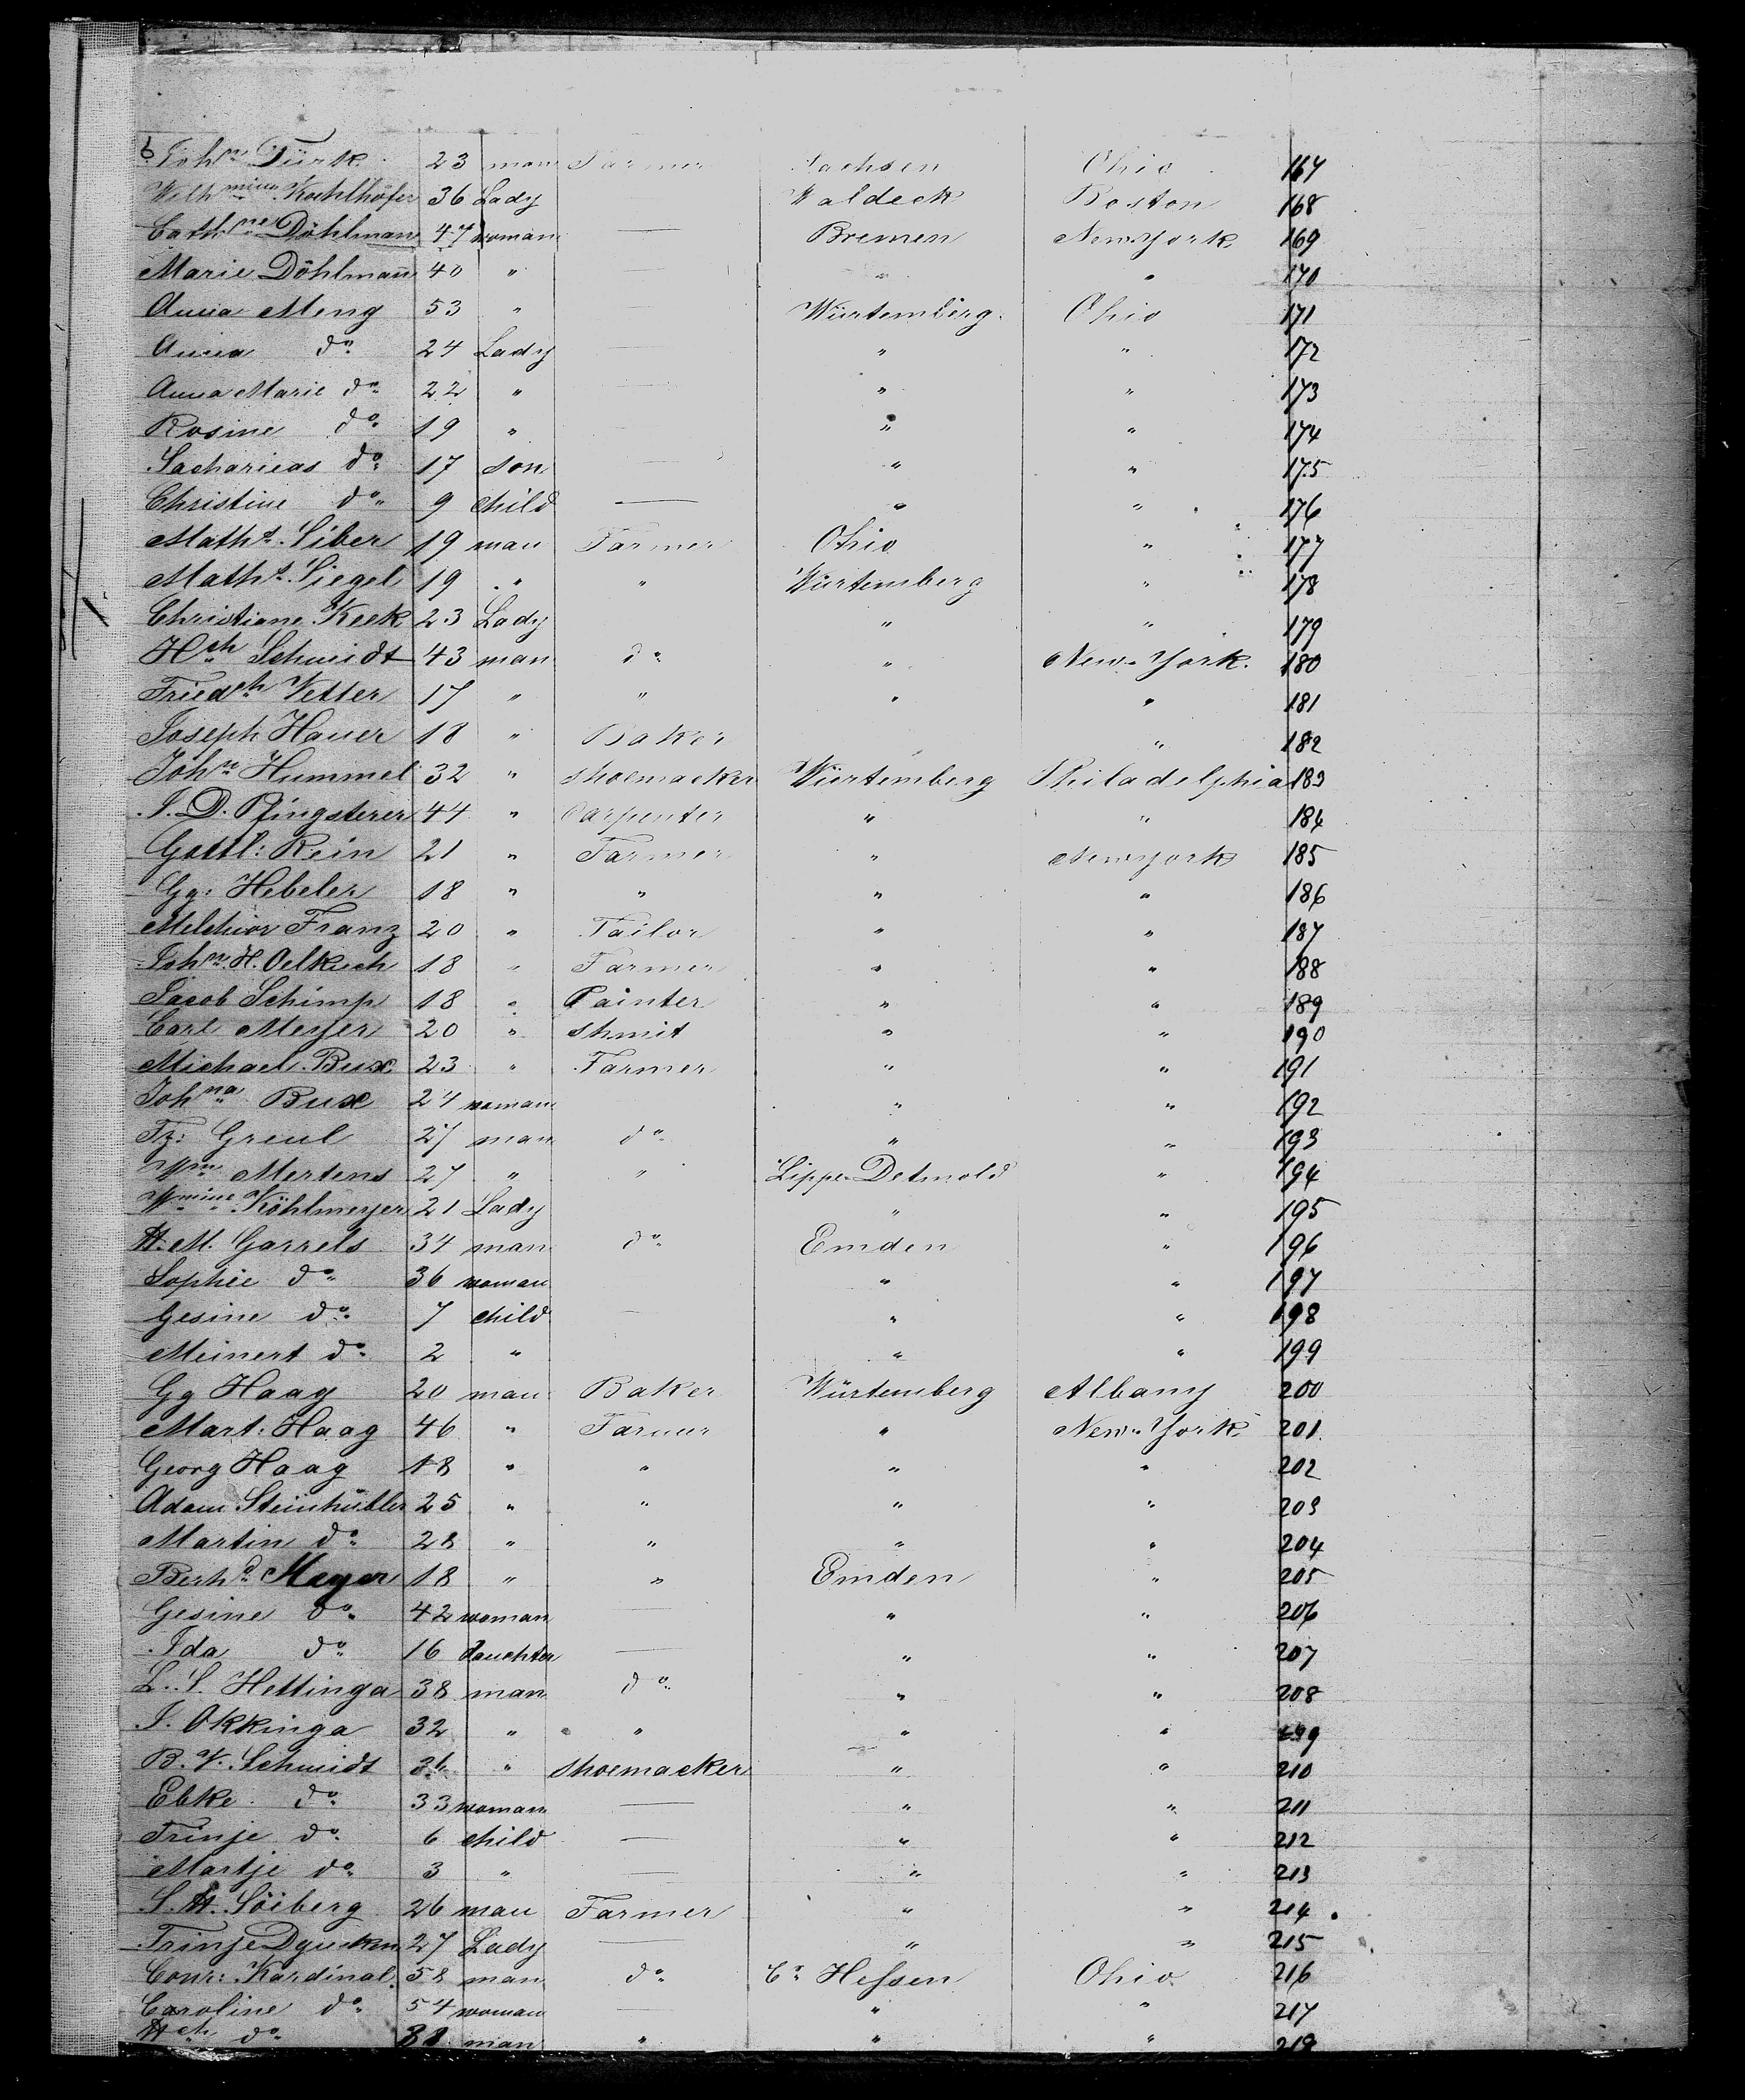 6 Joh.n Türk 23 man Farmer Sachsen Ohio 167
Wilh.mine Kuhlhöfer 36 Lady Waldeck Boston 168
Cath.ne Döhlman 47 woman — Bremen New-York 169
Marie Döhlmann 40 " " " 170
Anna Meng 53 " Würtemberg Ohio 171
Anna do 24 Lady " " 172
Anna Marie do 22 " " " 173
Rosine do 19 " " " 174
Sacharieas do 17 son " " 175
Christine do 9 child — " " 176
Math.s Siber 19 man Farmer Ohio " 177
Math.s Siegel 19 " " Würtemberg " 178
Christiane Keck 23 Lady " " 179
Hch Schmidt 43 man do " New-York 180
Friedch Vetter 17 " " " " 181
Joseph Hauer 18 " Baker " 182
Joh.n Hummel 32 " shoemacker Würtemberg Philadelphia 183
J. D. Pfingsterer 44 " Carpenter " " 184
Gottl: Rein 21 " Farmer " New york 185
Gg: Hebeler 18 " " " " 186
Melchior Franz 20 " Tailor " " 187
Joh.n H. Oelkuch 18 " Farmer " " 188
Jacob Schimp 18 " Painter " " 189
Carl Meyer 20 " shmit " " 190
Michael Bux 23 " Farmer " " 191
Joh.na Bux 24 woman " " 192
Fz: Greul 27 man do " " 193
Wm Mertens 27 " " Lippe-Detmold " 194
Wmine Köhlmeyer 21 Lady " " 195
H. M. Garrels 34 man do Emden " 196
Sophie do 36 woman " " 197
Gesine do 7 child " " 198
Meinert do 2 " " " 199
Gg Haag 20 man Baker Würtemberg Albany 200
Mart: Haag 46 " Farmer " New-York 201
Georg Haag 18 " " " " 202
Adam Steinhübler 25 " " " " 203
Martin do 28 " " " " 204
Berhd Meyer 18 " " Emden " 205
Gesine do 42 woman — " " 206
Ida do 16 dauchter — " " 207
L. S. Hettinga 38 man do " " 208
J. Okkinga 32 " " " " 209
B. V. Schmidt 36 " shoemacker " " 210
Ebke do 33 woman — " " 211
Trinje do 6 child — " " 212
Martje do 3 " — " " 213
S. H. Söiberg 26 man Farmer " " 214
Trinje 27 Lady — " " 215
Conr: Kardinal 58 man do Cs Hessen Ohio 216
Caroline do 54 woman — " " 217
Hch do man " " " 218